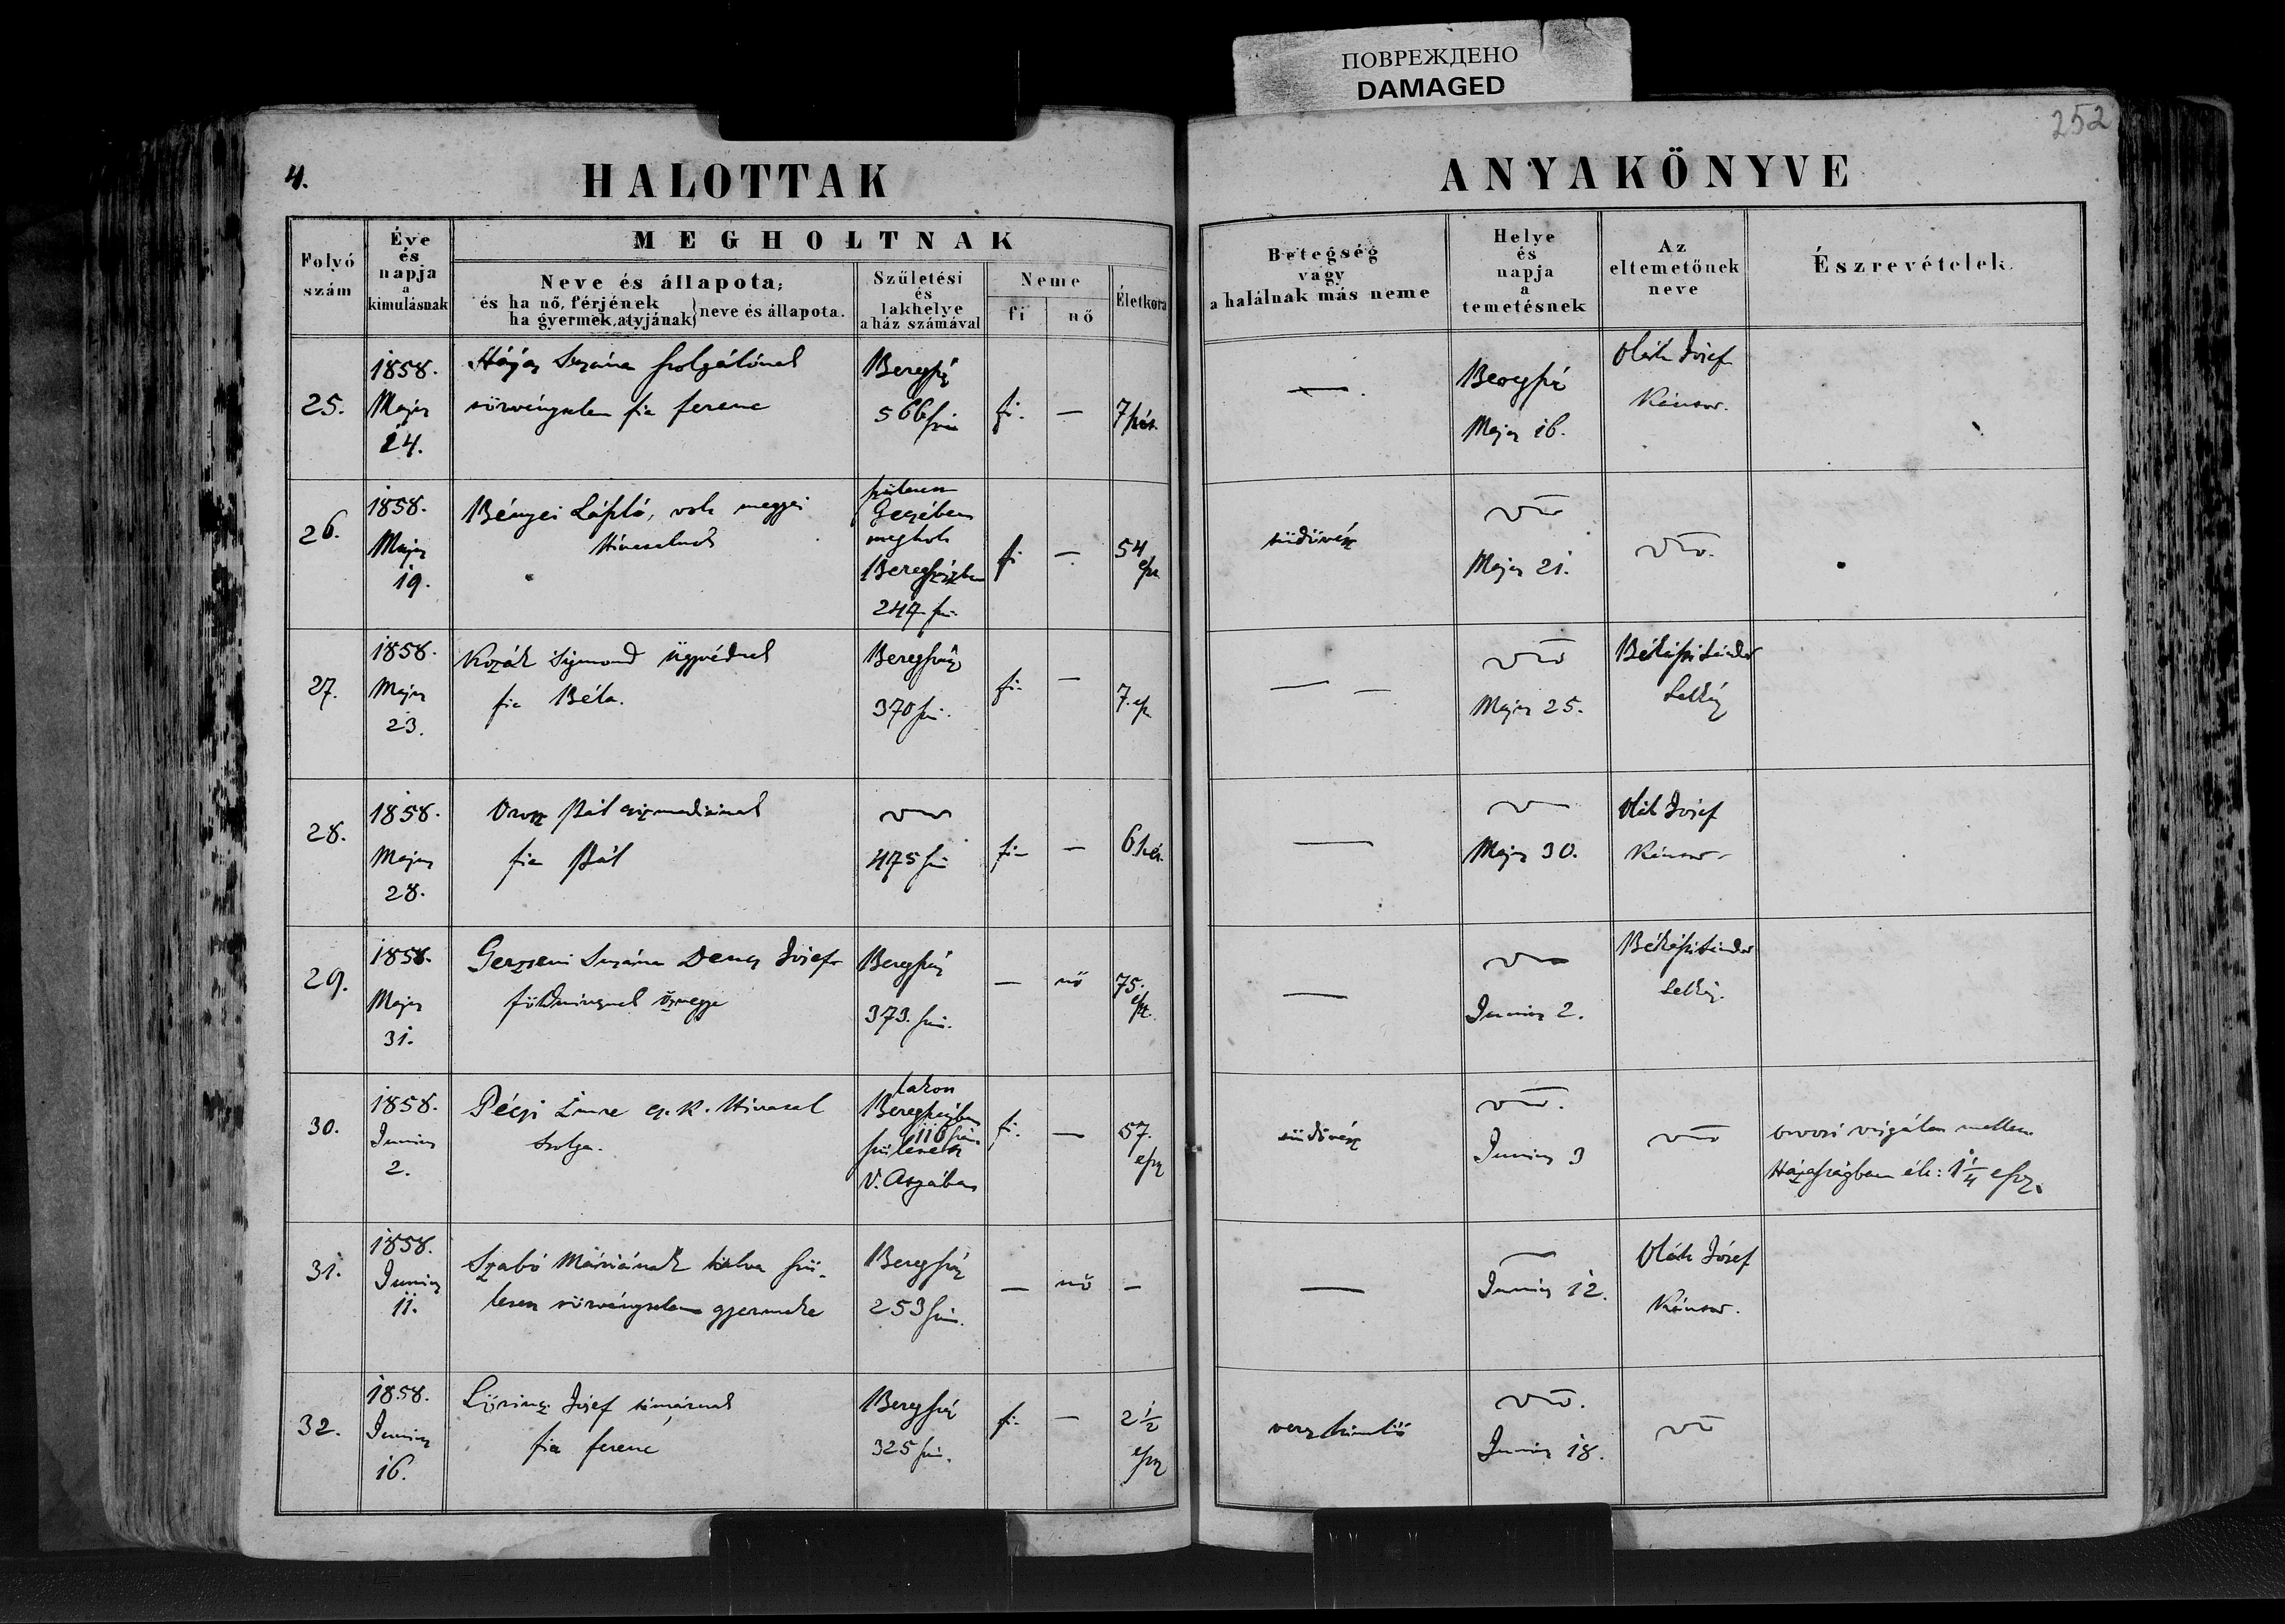 ПОВРЕЖДЕНО
DAMAGED
252
4.
HALOTTAK
ANYAKÖNYVE
Folyó szám
Éve és napja a kimulásnak
MEGHOLTNAK
Neve és állapota;
és ha nő, férjének ha gyermek, atyjának} neve és állapota.
Születési és lakhelye a ház számával
Neme
fi
nő
Életkora
Betegség vagy a halálnak más neme
Helye és napja a temetésnek
Az eltemetőnek neve
Észrevételek.
25.
1858.
Majus
14.
Susána szolgálónak
törvénytelen fia ferenc
Beregszász
566 szám
fi.
—
7 hét.
—.
Beregszász
Majus 16.
Oláh Josef
Kántor.
26.
1858.
Majus
19.
Bényei László, volt megyei
Hivatalnok
születésen
Gecsében
megholt
Beregszászban
247 szám
fi
—.
54
esz
tüdővész
Majus 21.
27.
1858.
Majus
23.
Kozák Sigmond ügyvédnek
fia Béla.
Beregszász
370 szám.
fi.
—
7. esz
— —
Majus 25.
Békéssi Sándor
Lelkész
28.
1858.
Majus
28.
Orosz Pál csizmadiának
fia Pál
475 szám
fi-
—
6 hét.
—
Majus 30.
Oláh Josef
Kántor
29.
1858.
Majus
31.
Susána Josef
földmívesnek özvegye
Beregszász
373. szám.
—
nő
75.
esz.
—
Junius 2.
Békéssi Sándor
Lelkész.
30.
1858.
Junius
2.
Pécsi Imre cs. k. Hivatal
szolga.
lakott
Beregszászban
110 szám.
született
fi.
—
57.
esz
tüdővész
Junius 3
orvosi vizsgálat mellett
Házasságban élt: 1 1/4 esz.
31.
1858.
Junius
11.
Szabó Máriának halva szü-
letett törvénytelen gyermeke
Beregszász
253 szám.
—
nő
—
—
Junius 12.
Oláh József
Kántor.
32.
1858.
Junius
16.
Lőrincz Josef timárnak
fia ferenc
Beregszász
325 szám.
fi-
—
2 1/2
esz
veres himlő
Junius 18.